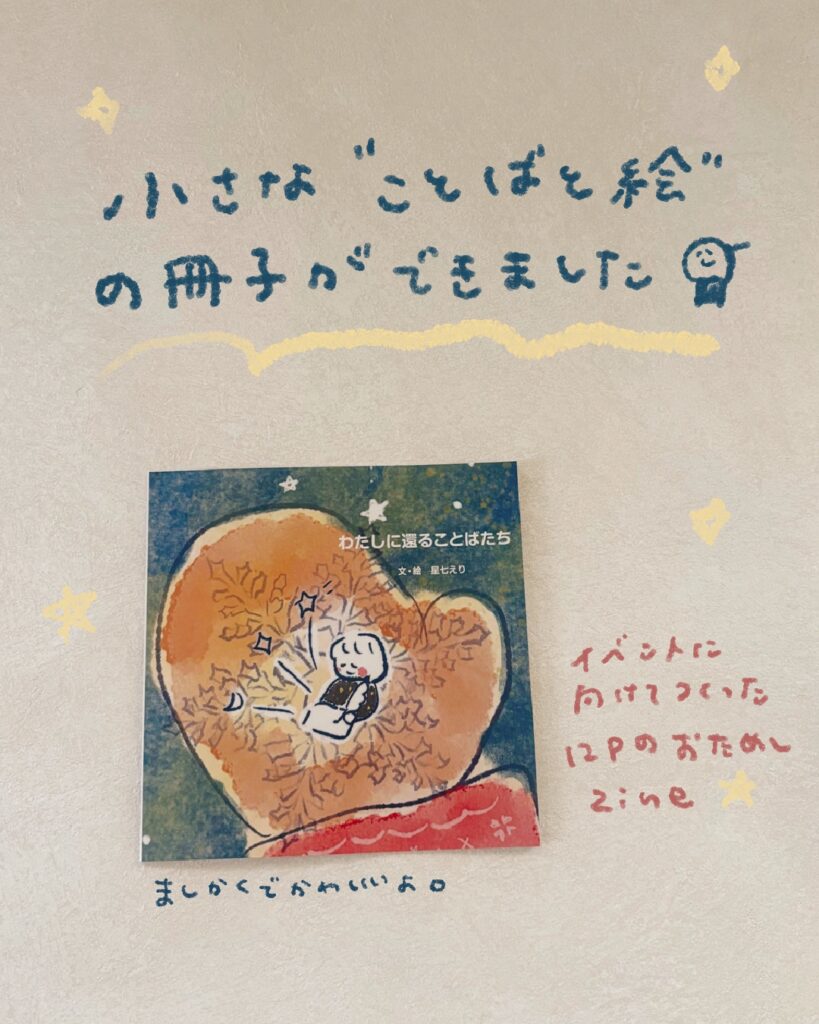 小さな"ことばと絵"
の冊子ができました
わたしに還ることばたち
文・絵 星七えり
イベントに
向けてつくった
12Pのおためし
zine
ましかくでかわいいよ。